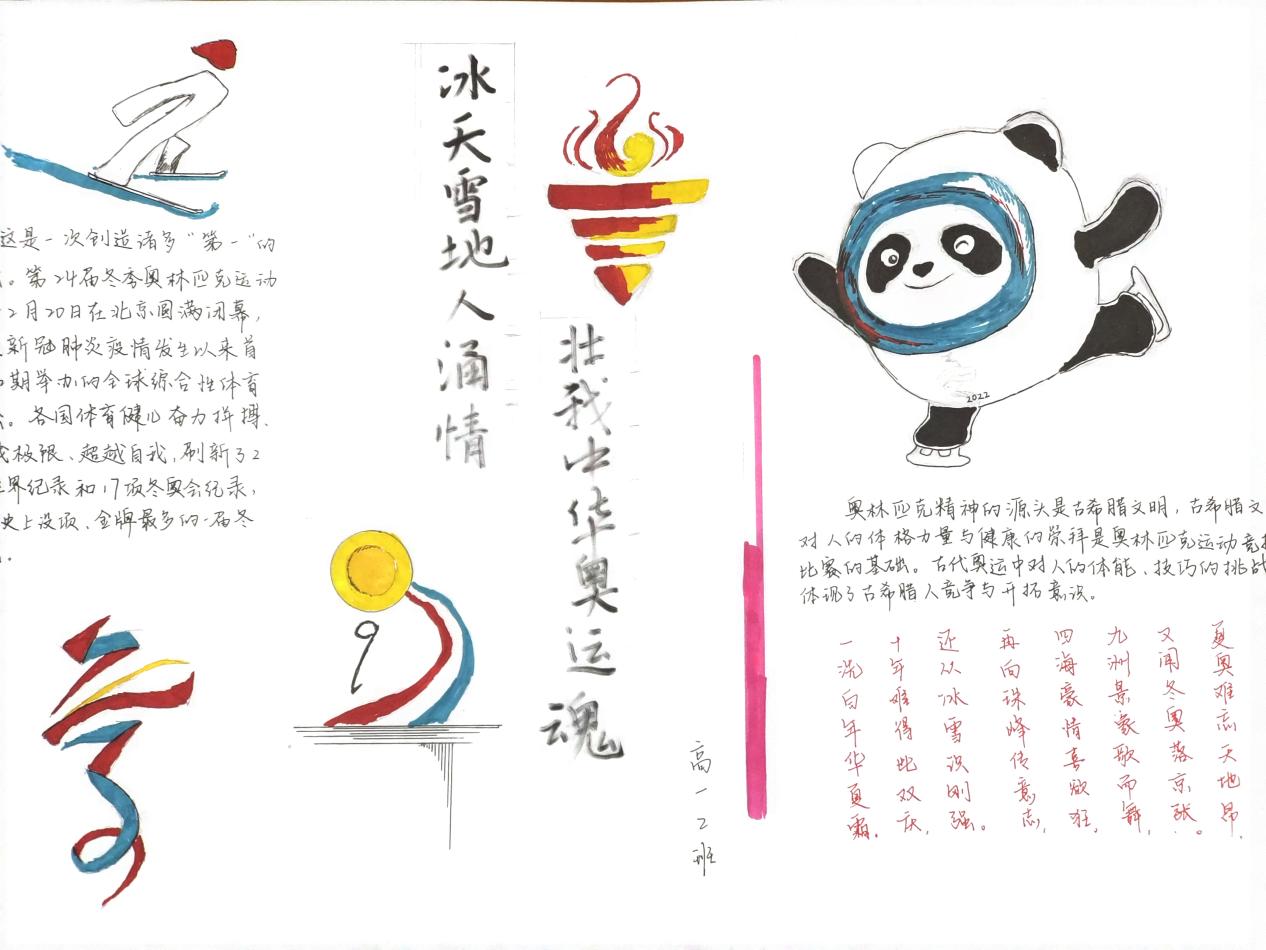 冰天雪地人涌情
壮我中华奥运魂
这是一次创造诸多“第一”的
。第24届冬季奥林匹克运动
2月20日在北京圆满闭幕，
新冠肺炎疫情发生以来首
期举办的全球综合性体育
。各国体育健儿奋力拼搏、
战极限、超越自我，刷新了2
世界纪录和17项冬奥会纪录，
史上设项、金牌最多的一届冬
。
高一2班
2022
奥林匹克精神的源头是古希腊文明，古希腊文
对人的体格力量与健康的崇拜是奥林匹克运动竞技
比赛的基础。古代奥运中对人的体能、技巧的挑战
体现了古希腊人竞争与开拓意识。
夏奥难忘天地昂，
又闻冬奥落京张。
九洲景象歌而舞，
四海豪情喜欲狂，
再向珠峰传意志，
还从冰雪识刚强。
十年难得此双庆，
一洗百年华夏霜．